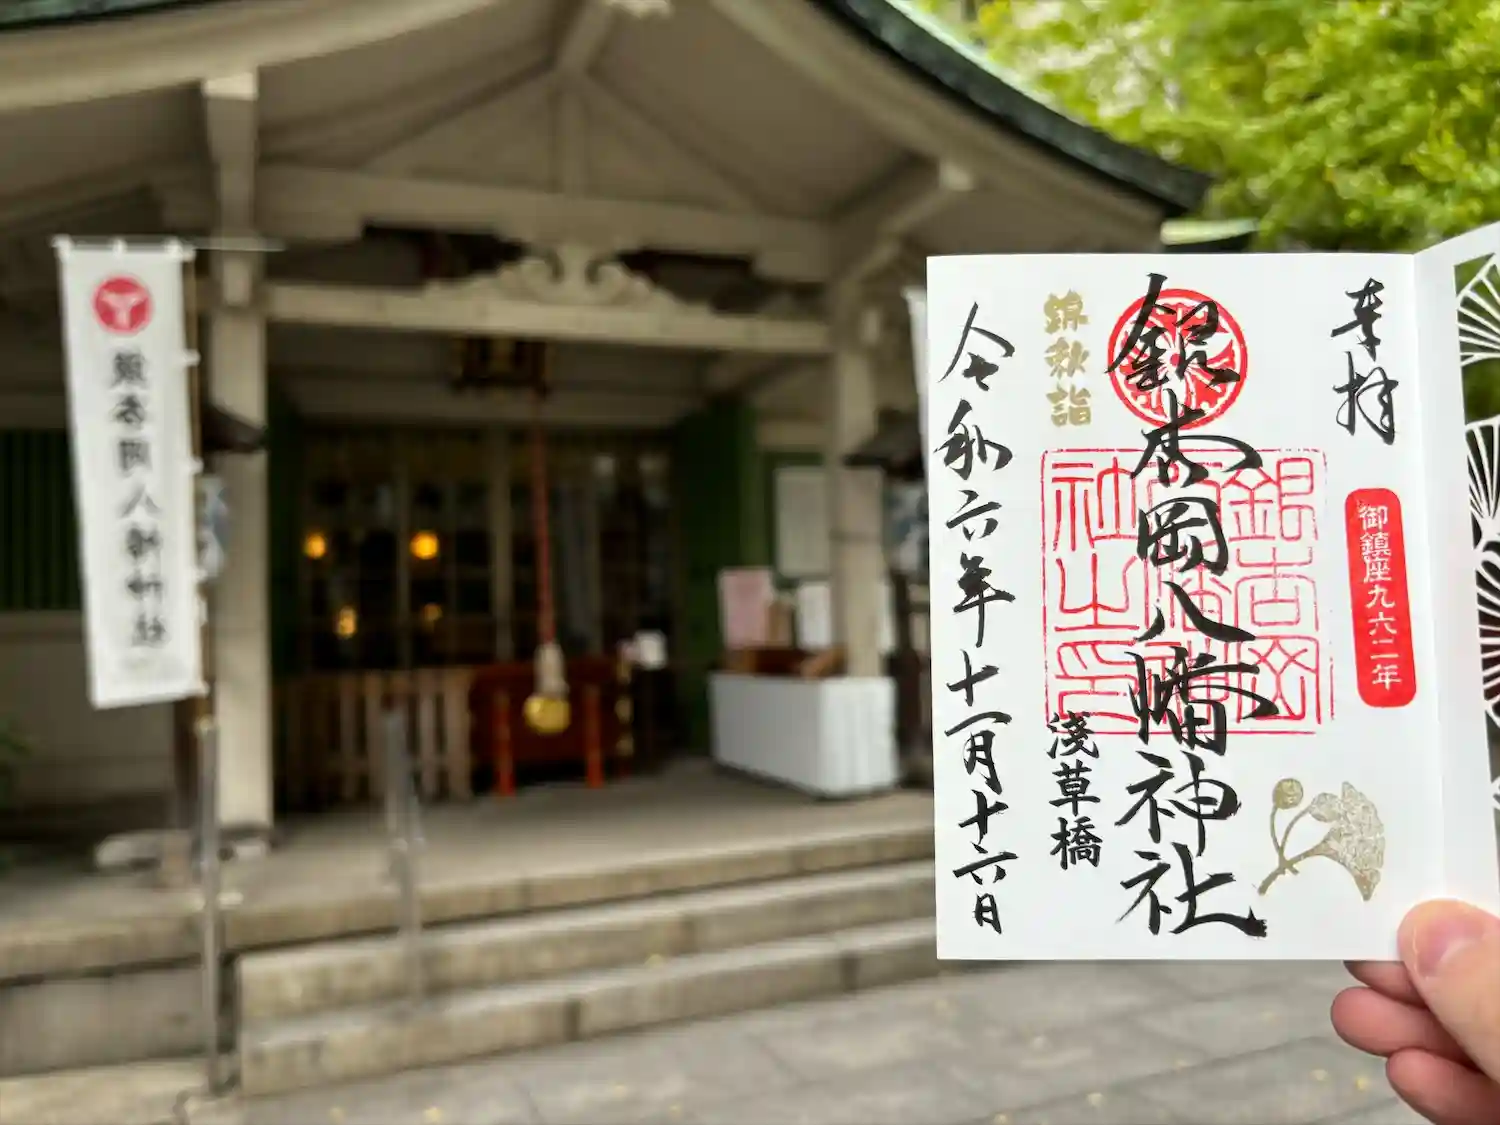 銀杏岡八幡神社
奉拝
御鎮座九六二年
銀杏岡八幡神社
銀杏岡八幡神社之印
錦秋詣
淺草橋
令和六年十一月十六日